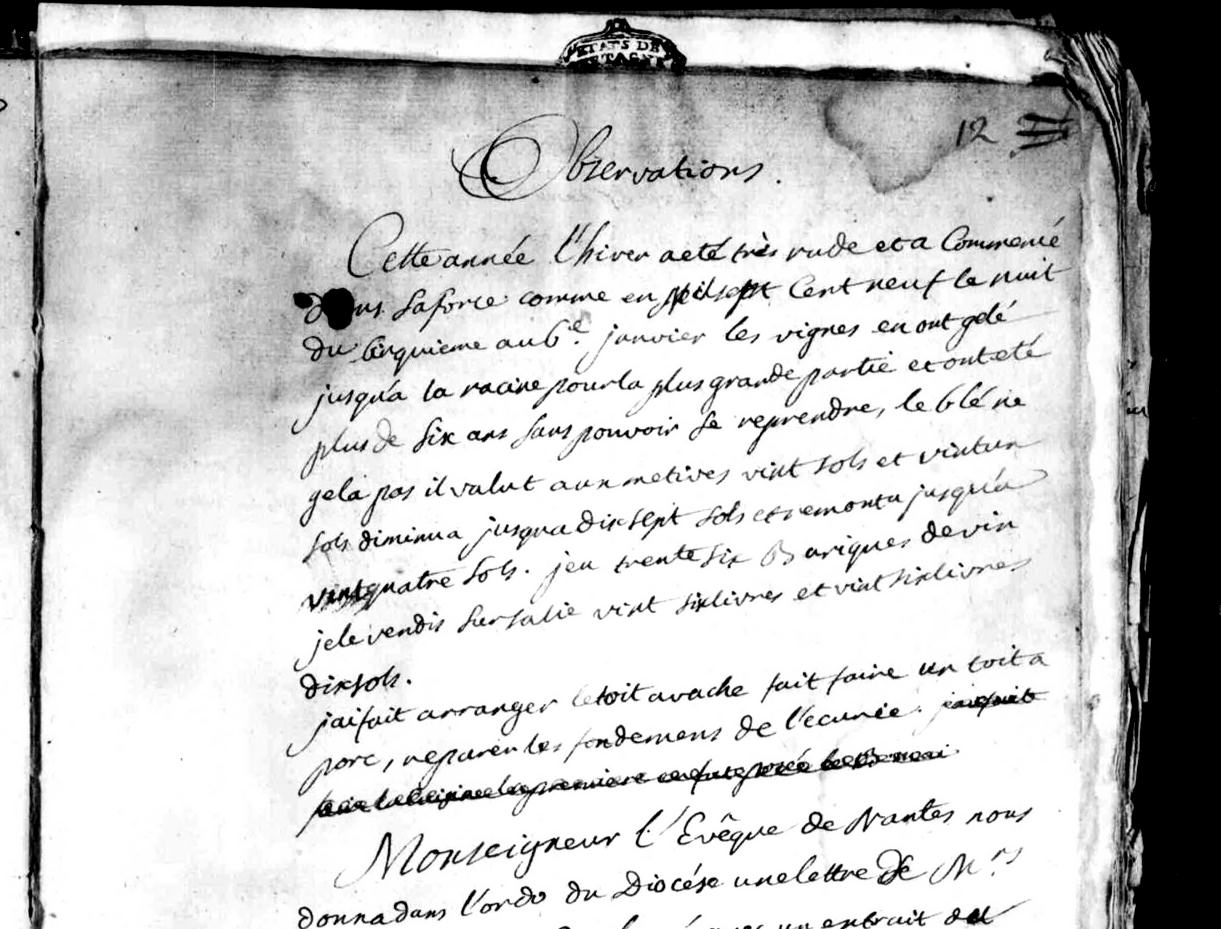 ETATS DE
BRETAGNE
12
Observations.
Cette année l'hiver a eté très rude et a Commencé
dans sa force comme en Mil sept Cent neuf la nuit
du cinquieme au 6e. janvier les vignes en ont gelé
jusqu'a la racine pour la plus grande partie et ont eté
plus de six ans sans pouvoir se reprendre, le blé ne
gela pas il valut aux metives vint sols et vintun
sols diminua jusqua dix sept sols et remonta jusqu'a
vint quatre sols. jeu trente six Bariques de vin
je le vendis sur la lie vint six livres et vint six livres
dix sols.
jai fait arranger le toit a vache fait faire un toit a
porc, reparer les fondemens de l'ecurie. jai fait
faire la cuisine la premiere en fut posée le mai
Monseigneur l'Evêque de Nantes nous
donna dans l'ordo du Diocése une lettre de Mrs
un extrait del